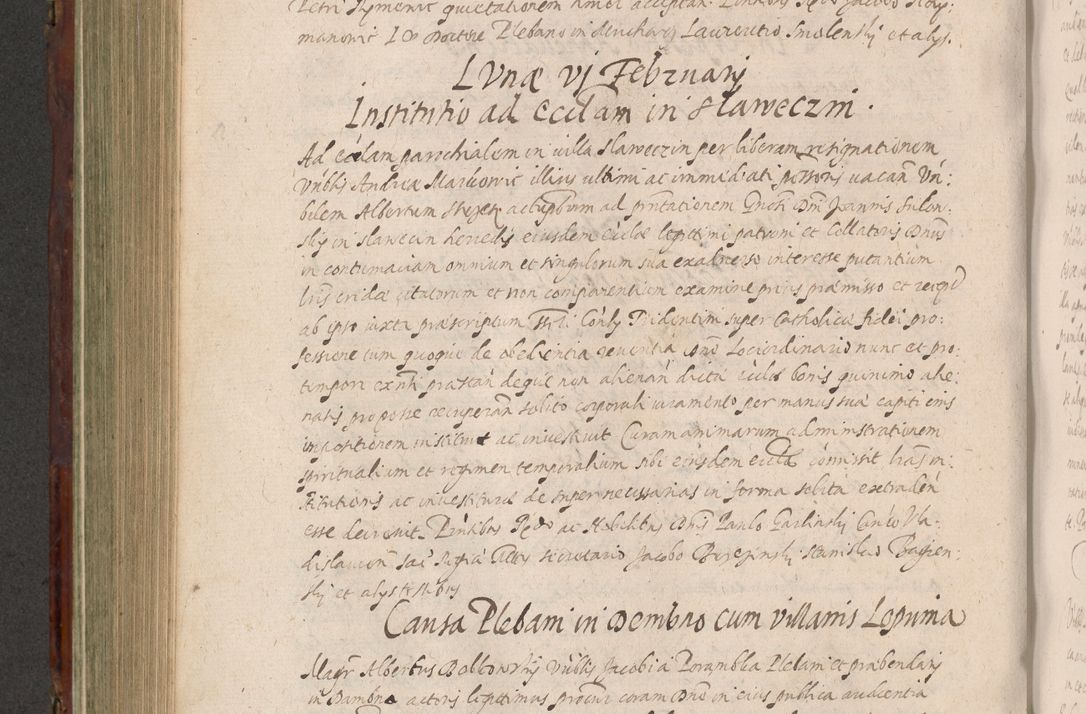 Petri Symonic quietationem simel acceptan. Pntibus Rdo Jacobo Szy:
manowic I V Doctore Plebano in Laurentio Smolenskj et alijs.
Lunæ vj Februarij
Institutio ad Ecclam in Slaweczin.
Ad ecclam parochialem in villa Slaweczin per liberam resignationem
Vnblis Andreæ Markowic illius ultimi ac immediati possoris vacan Vn:
bilem Albertum ad pntationem Gnosi Dni Joannis Sulow:
skj in Slawecin heredis eiusdem ecclæ legitimi patroni et Collatoris Dnus
in contumaciam omnium et singulorum sua ex adverso interesse putantium
lris cridæ citatorum et non comparentium examine prius præmisso et recepta
ab ipso iuxta præscriptum Conly Tridentini super Catholicæ fidei pro:
fessione tum quoque de obedientia reverentia Dno Lociordinario nunc et pro
tempore exnti præstan deque non alienan dictæ ecclæ bonis quinimo alie:
natis pro posse recuperan solito corporali iuramento per manus suæ capiti eius
impositionem instituit ac investivit Curam animarum administrationem
spiritualium et regimen temporalium sibi eiusdem ecclæ commisit lras in:
stitutionis ac investituræ desuper necessarias in forma solita extraden
esse decrevit. Pntibus Rdo ac Nobilibus Dnis Paulo Garlinskj Canco Vla:
dislavien Sac secretario Jacobo Stanislao Bagien:
skj et alijs testibus
Causa Plebani in Dembno cum villanis Lopuina
Magr Albertus Vnblis Jacobi a Porambka Plebani et præbendarij
in Dambno actoris legitimus procur coram Dno in eius publica audientia